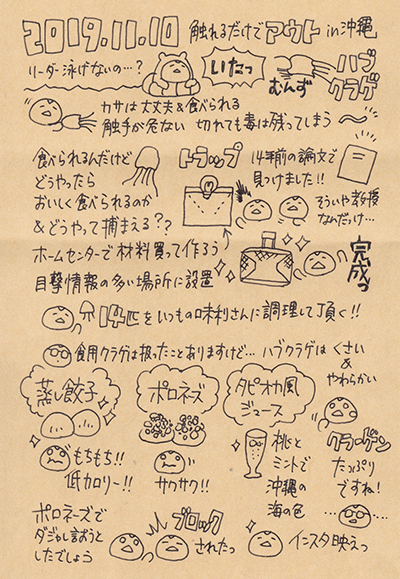 2019.11.10 触れるだけでアウト in 沖縄
リーダー泳げないの…?
いたっ
むんず
ハブ
クラゲ
カサは大丈夫&食べられる
触手が危ない 切れても毒は残ってしまう
食べられるんだけど
どうやったら
おいしく食べられるのか
&どうやって捕まえる??
トラップ
14年前の論文で
見つけました!!
そういや教授
なんだっけ…
ホームセンターで材料買って作ろう
目撃情報の多い場所に設置
完成っ
14匹をいつもの味利さんに調理して頂く!!
食用クラゲは扱ったことありますけど… ハブクラゲは くさい
&
やわらかい
蒸し餃子
ポロネーズ
タピオカ風
ジュース
もちもち!!
低カロリー!!
サクサク!!
桃と
ミントで
沖縄の
海の色
クラーゲン
たっぷり
ですね!
…
…
ポロネーズで
ダジャレ言おうと
したでしょう
ブロック
されたっ
インスタ映えっ